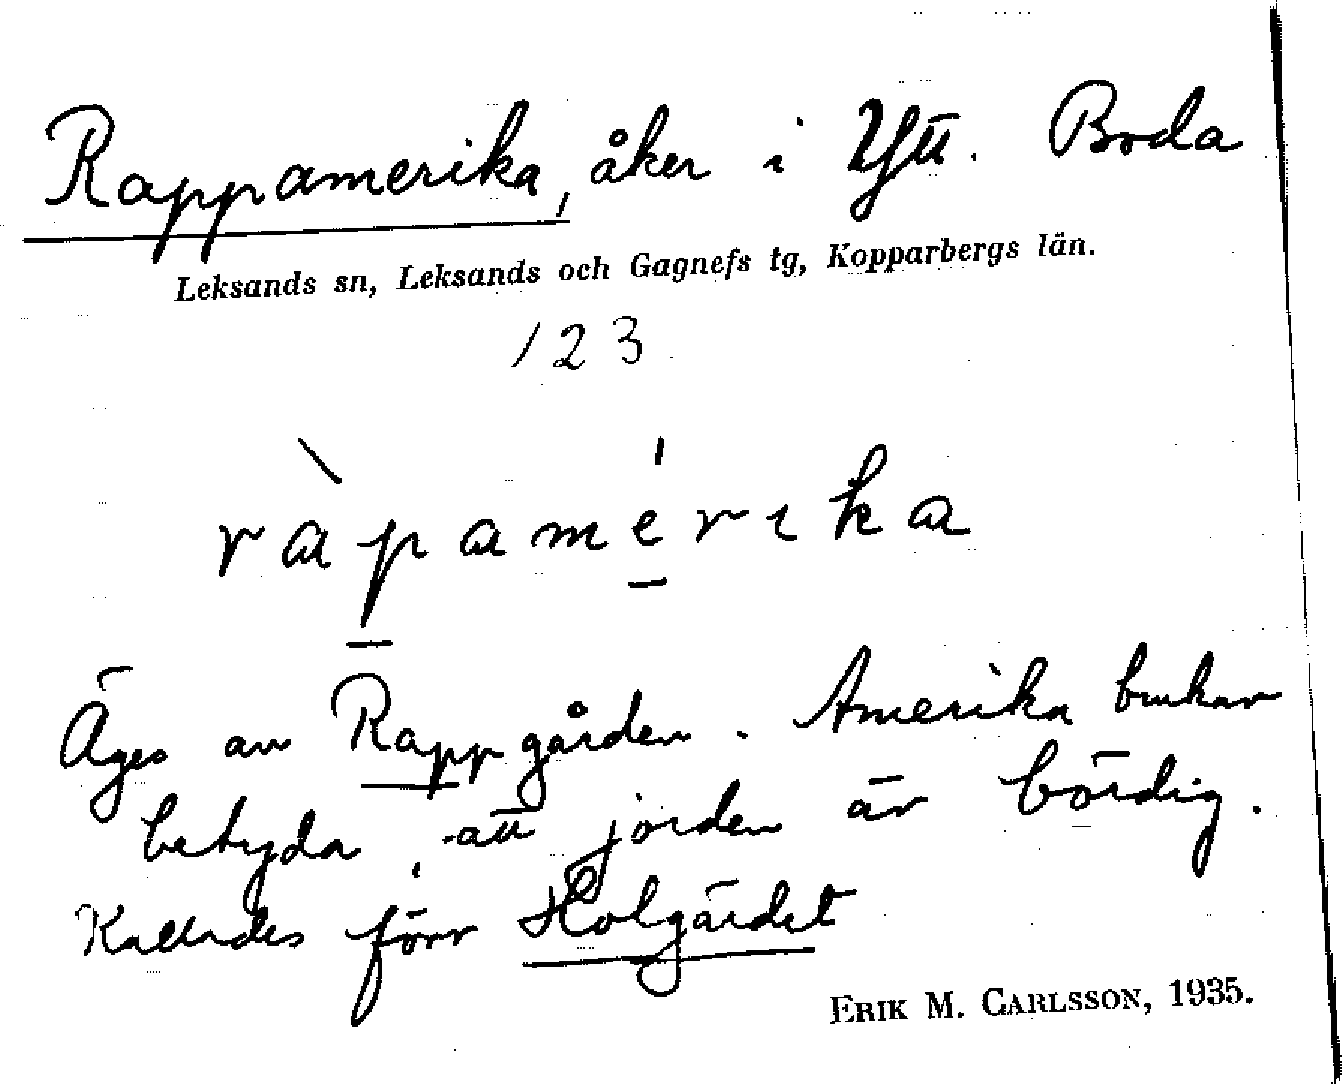 Rappamerika, åker i Ytt. Boda
Leksands sn, Leksands och Gagnefs tg, Kopparbergs län.
123
ràpamérıka
Äges av Rappgården. Amerika brukar
betyda, att jorden är bördig.
Kallades förr Holgärdet
ERIK M. CARLSSON, 1935.